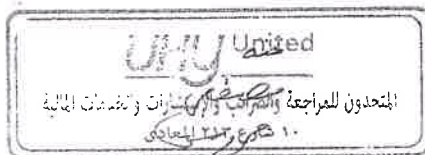 UHY United
المتحدون للمراجعة والضرائب والإستشارات والخدمات المالية
١٠ شارع ٢١٣ المعادى